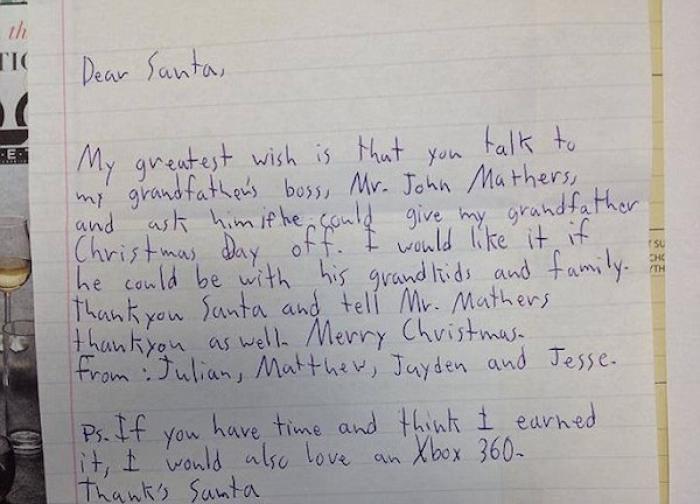 th
TI
E
Dear Santa,
My greatest wish is that you talk to
my grandfather's boss, Mr. John Mathers,
and ask him if he could give my grandfather
Christmas Day off. I would like it if
he could be with his grandkids and family.
Thank you Santa and tell Mr. Mathers
thankyou as well. Merry Christmas.
From: Julian, Matthew, Jayden and Jesse.
Ps. If you have time and think I earned
it, I would also love an Xbox 360.
Thank's Santa